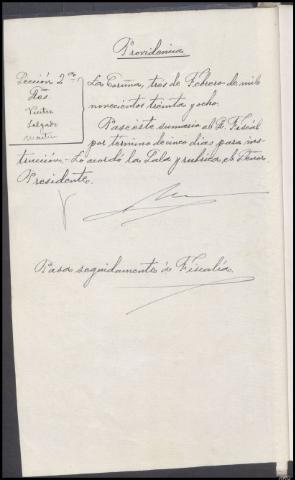 Providencia
Sección 2ª
Sres
Victor
Salgado
La Coruña, tres de Febrero de mil
novecientos treinta y ocho.
Pase éste sumario al S. Fiscal
por término de cinco dias para ins-
trucción.- Lo acordó la Sala y rubrica el Señor
Presidente.
Pasa seguidamente á Fiscalía.